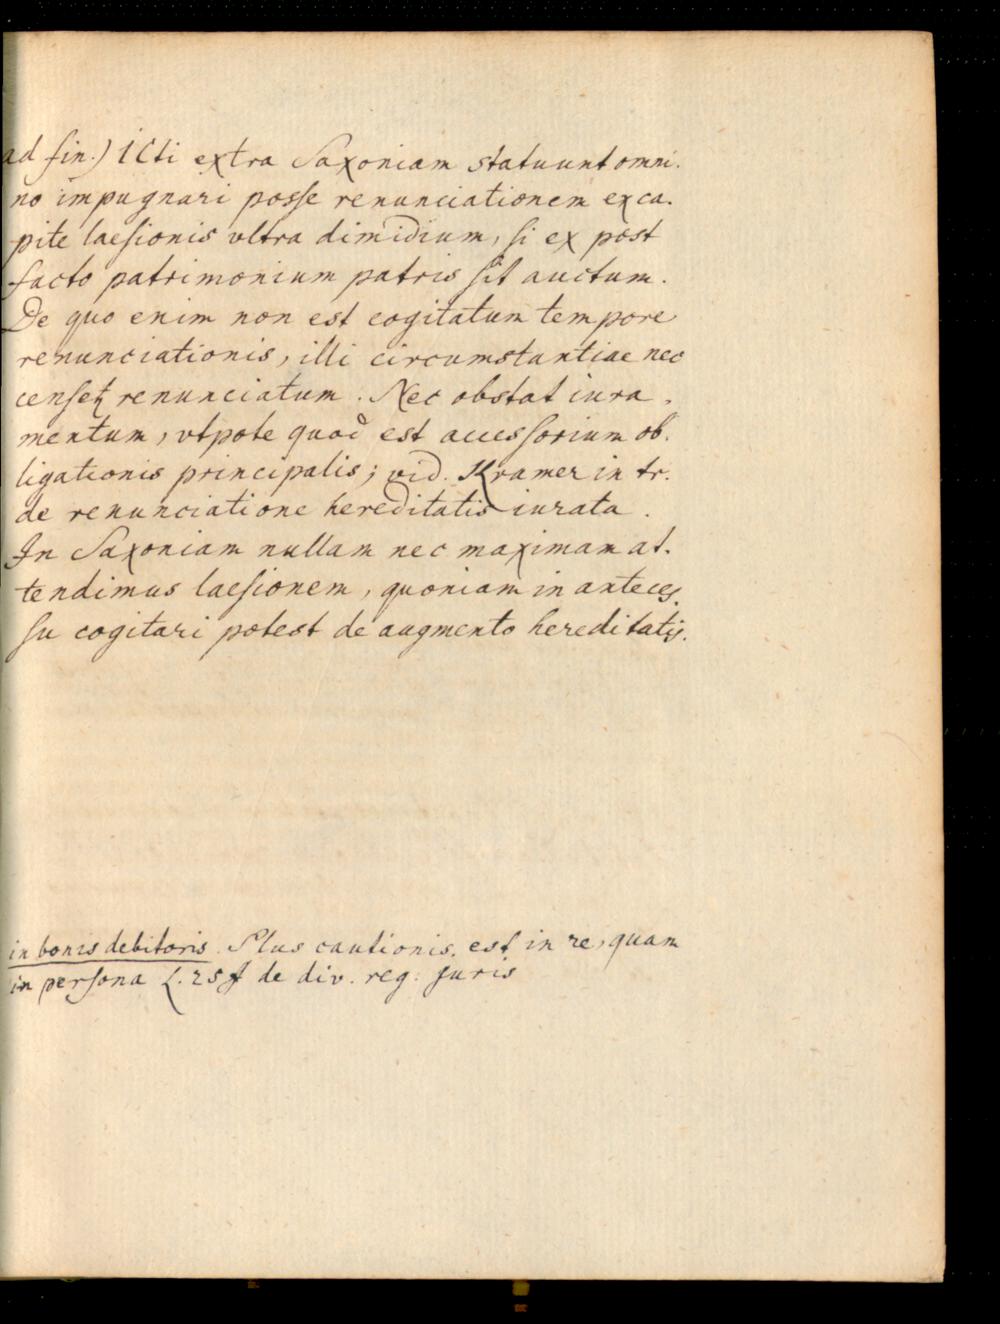 ad fin.) ICti extra Saxoniam statuunt omni.
no impugnari posse renunciationem ex ca.
pite laesionis vltra dimidium, si ex post
facto patrimonium patris sit auctum.
De quo enim non est cogitatum tempore
renunciationis, illi circumstantiae nec
censetꝫ renunciatum. Nec obstat iura.
mentum, vtpote quod est accessorium ob.
ligationis principalis; vid. Kramer in tr.
de renunciatione hereditatis iurata.
In Saxoniam nullam nec maximam at.
tendimus laesionem, quoniam in anteces.
su cogitari potest de augmento hereditatis.
in bonis debitoris. Plus cautionis. est in re, quam
in persona L. 25 ff de div. reg. Juris